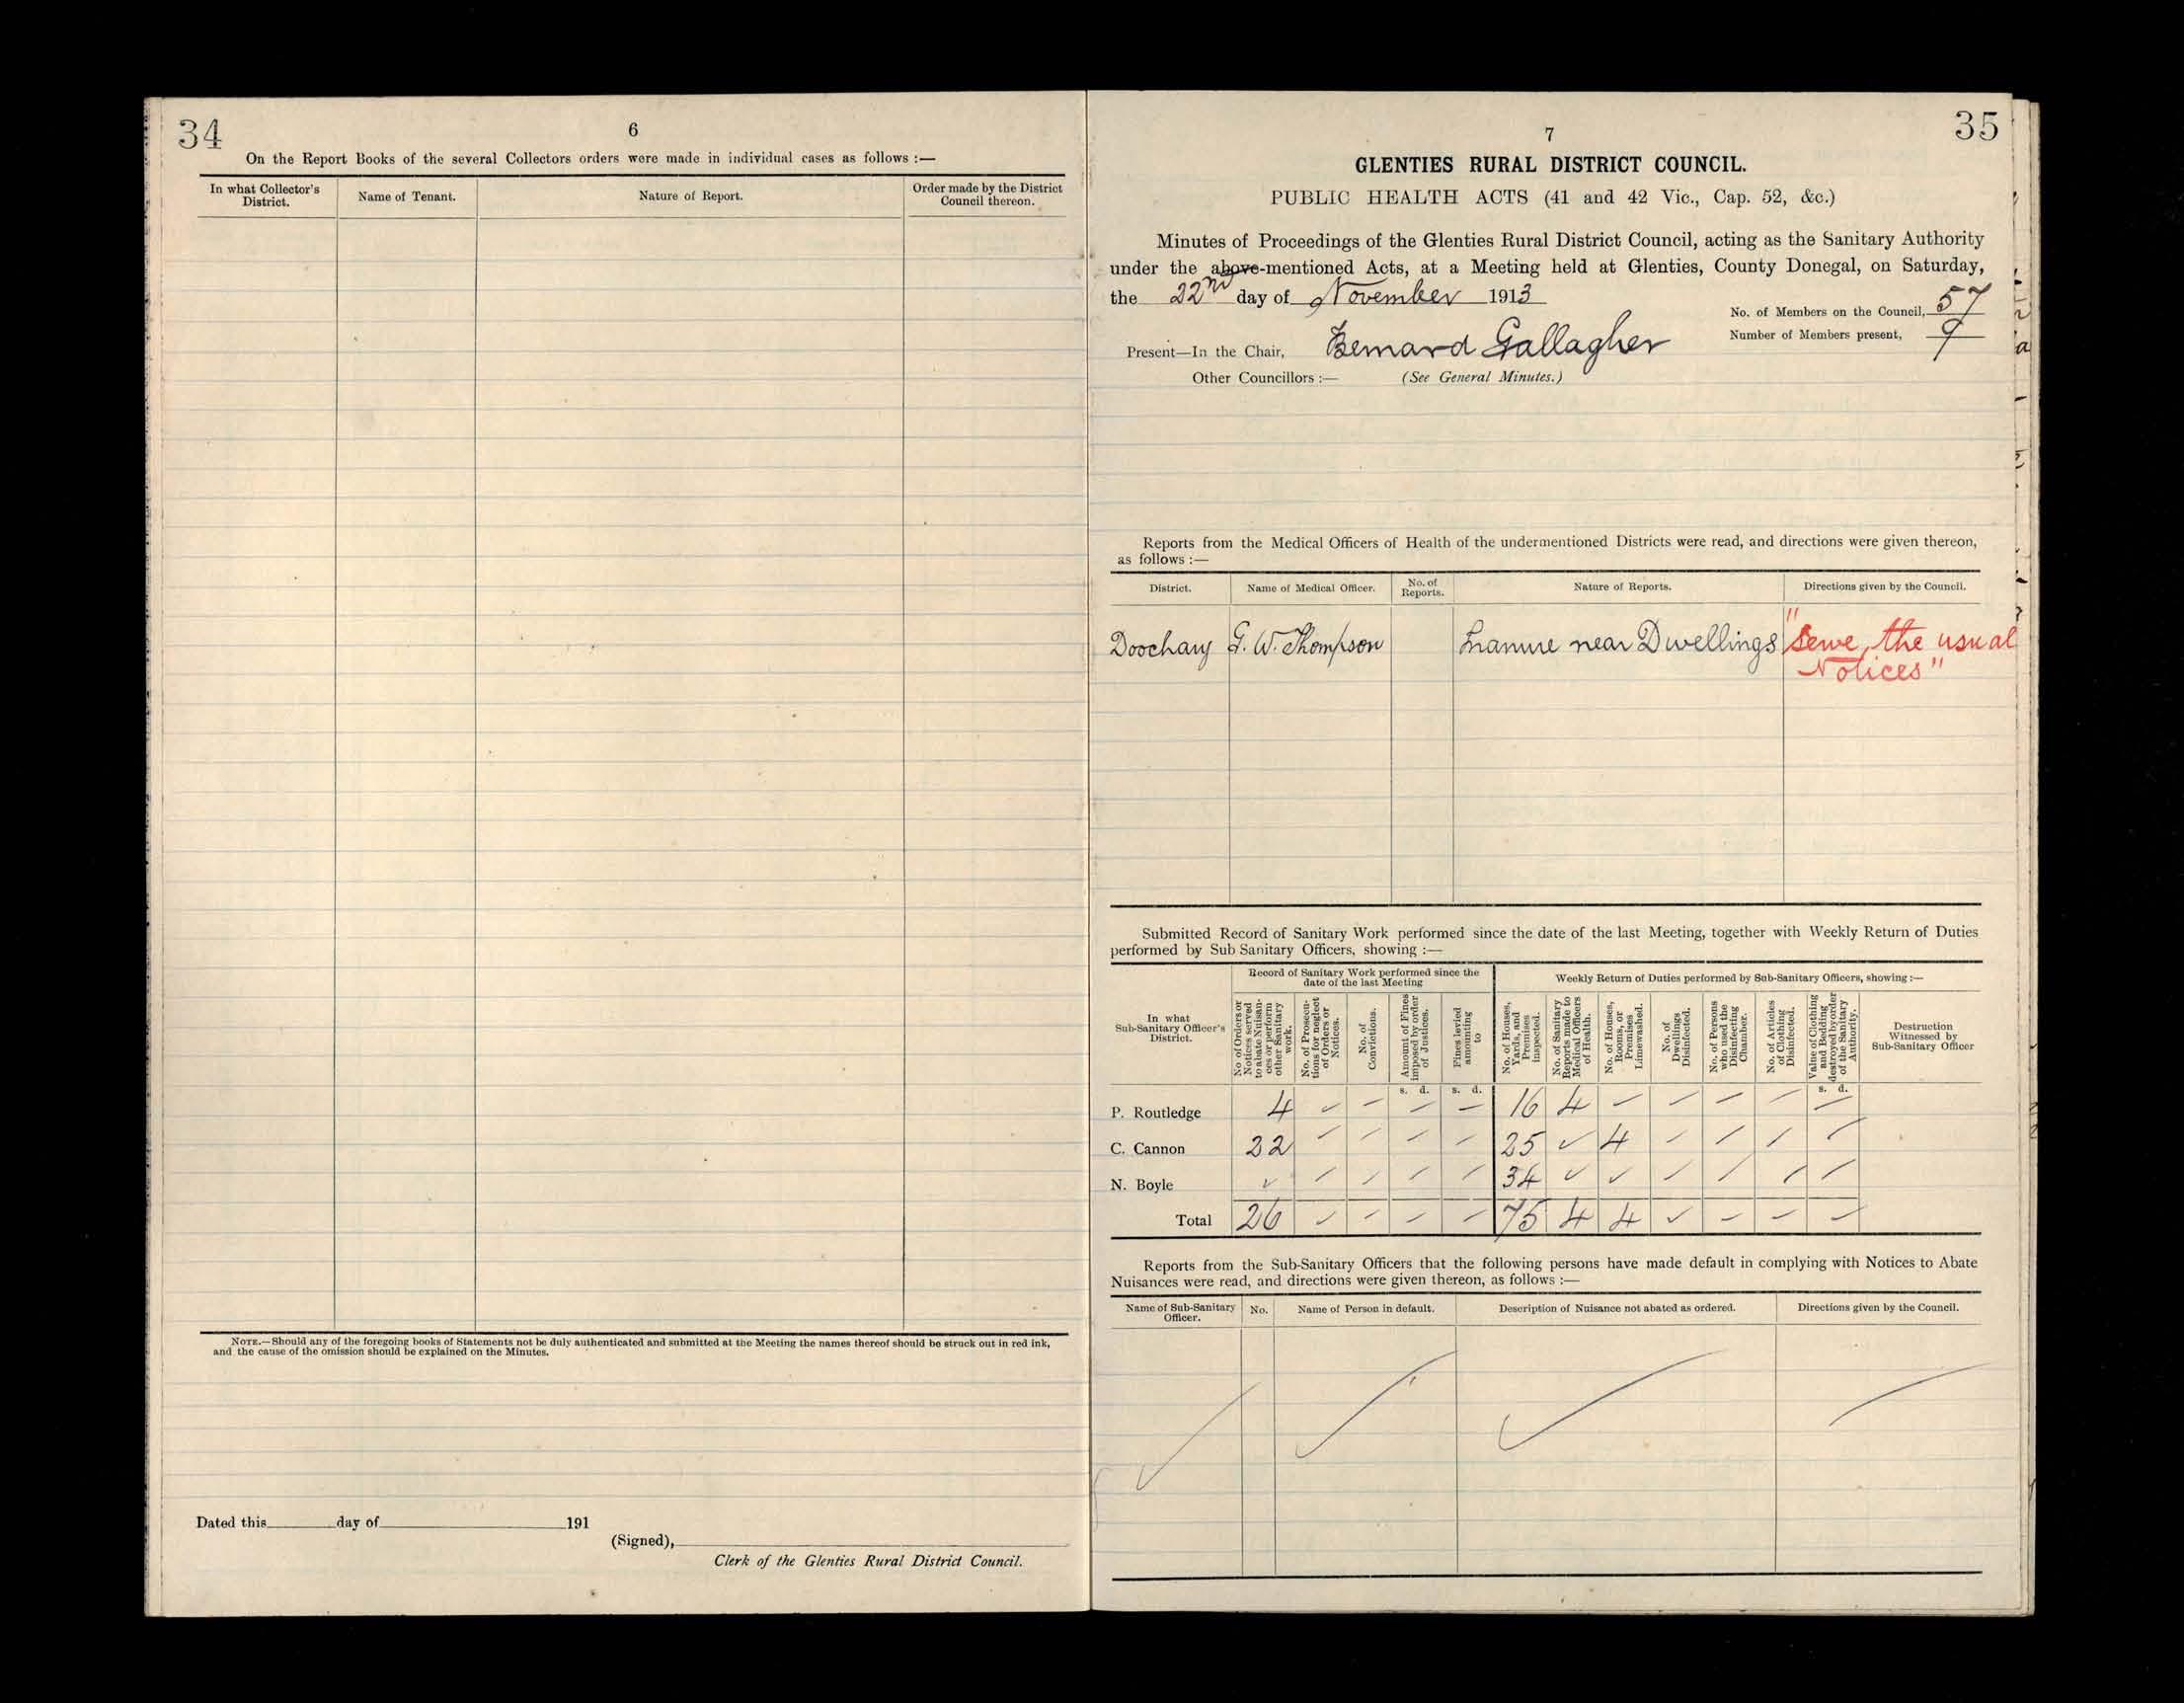 34
6
On the Report Books of the several Collectors orders were made in individual cases as follows :—
In what Collector's District.
Name of Tenant.
Nature of Report.
Order made by the District Council thereon.
NOTE.—Should any of the foregoing books of Statements not be duly authenticated and submitted at the Meeting the names thereof should be struck out in red ink,
and the cause of the omission should be explained on the Minutes.
Dated this day of 191
(Signed),
Clerk of the Glenties Rural District Council.
35
7
GLENTIES RURAL DISTRICT COUNCIL.
PUBLIC HEALTH ACTS (41 and 42 Vic., Cap. 52, &c.)
Minutes of Proceedings of the Glenties Rural District Council, acting as the Sanitary Authority
under the above-mentioned Acts, at a Meeting held at Glenties, County Donegal, on Saturday,
the 22nd day of November 1913
No. of Members on the Council, 57
Number of Members present, 9
Present—In the Chair, Bernard Gallagher
Other Councillors :— (See General Minutes.)
Reports from the Medical Officers of Health of the undermentioned Districts were read, and directions were given thereon,
as follows :—
District.
Name of Medical Officer.
No. of Reports.
Nature of Reports.
Directions given by the Council.
Doochary G. W. Thompson Manure near Dwellings "Serve the usual
Notices"
Submitted Record of Sanitary Work performed since the date of the last Meeting, together with Weekly Return of Duties
performed by Sub Sanitary Officers, showing :—
In what Sub-Sanitary Officer's District.
Record of Sanitary Work performed since the date of the last Meeting
Weekly Return of Duties performed by Sub-Sanitary Officers, showing :—
No of Orders or Notices served to abate Nuisances or perform other Sanitary work.
No. of Prosecutions for neglect of Orders or Notices.
No. of Convictions.
Amount of Fines imposed by order of Justices.
Fines levied amounting to
No. of Houses, Yards, and Premises inspected.
No. of Sanitary Reports made to Medical Officers of Health.
No. of Houses, Rooms, or Premises Limewashed.
No. of Dwellings Disinfected.
No. of Persons who used the Disinfecting Chamber.
No. of Articles of Clothing Disinfected.
Value of Clothing and Bedding destroyed by order of the Sanitary Authority.
Destruction Witnessed by Sub-Sanitary Officer
s. d. s. d. s. d.
P. Routledge 4 16 4
C. Cannon 22 25 4
N. Boyle 34
Total 26 75 4 4
Reports from the Sub-Sanitary Officers that the following persons have made default in complying with Notices to Abate
Nuisances were read, and directions were given thereon, as follows :—
Name of Sub-Sanitary Officer.
No.
Name of Person in default.
Description of Nuisance not abated as ordered.
Directions given by the Council.